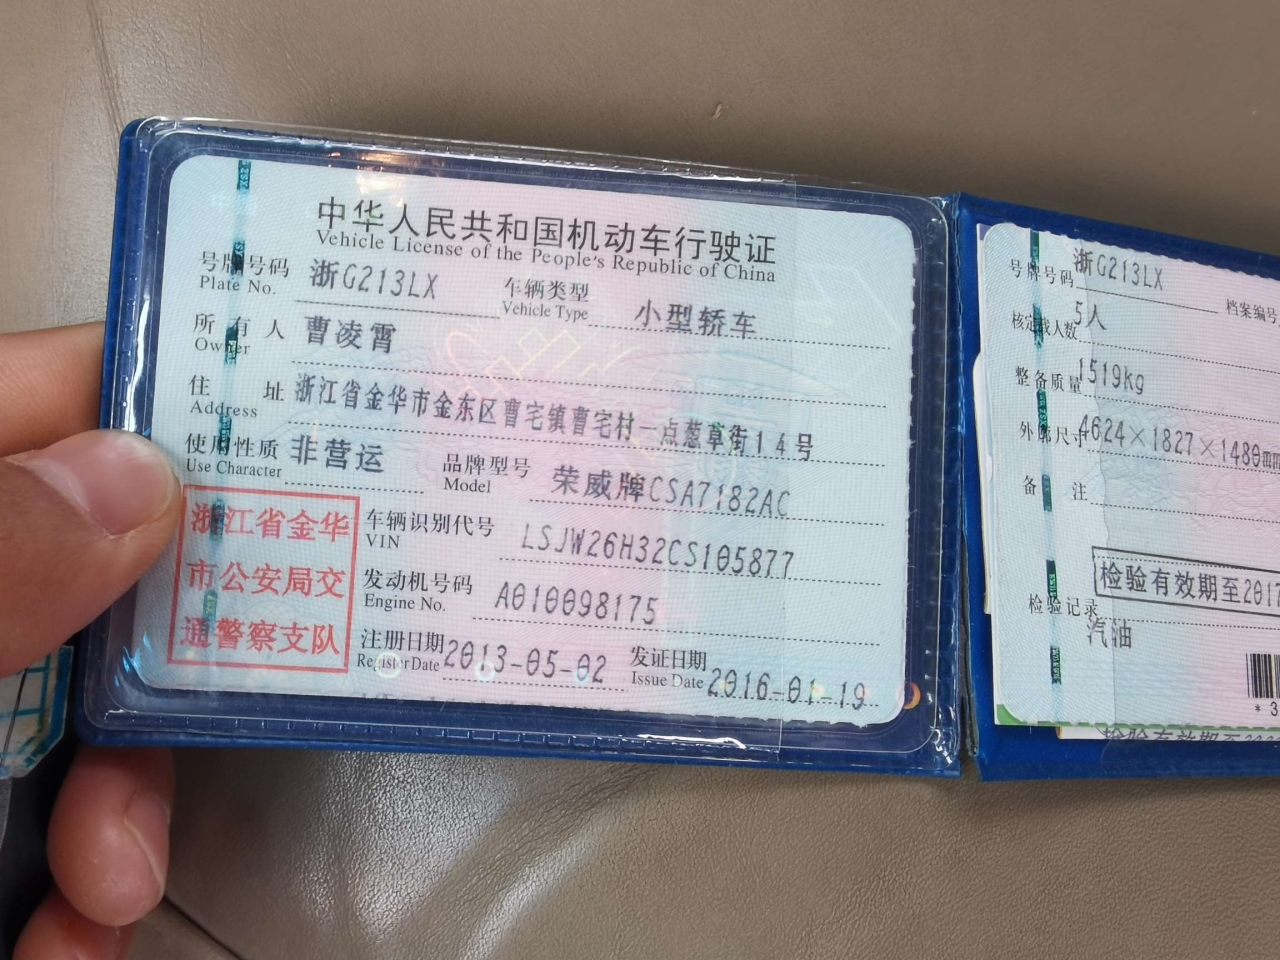 中华人民共和国机动车行驶证
Vehicle License of the People's Republic of China
号牌号码 浙G213LX 车辆类型 小型轿车
Plate No. Vehicle Type
所有人 曹凌霄
Owner
住址 浙江省金华市金东区曹宅镇曹宅村一点葱草街14号
Address
使用性质 非营运 品牌型号 荣威牌CSA7182AC
Use Character Model
浙江省金华
市公安局交
通警察支队
车辆识别代号 LSJW26H32CS105877
VIN
发动机号码 A010098175
Engine No.
注册日期 2013-05-02 发证日期 2016-01-19
Register Date Issue Date
号牌号码 浙G213LX 档案编号
核定载人数 5人
整备质量 1519kg
外廓尺寸 4624×1827×1480mm
备注
检验有效期至2017
检验记录
汽油
* 3
检验有效期至